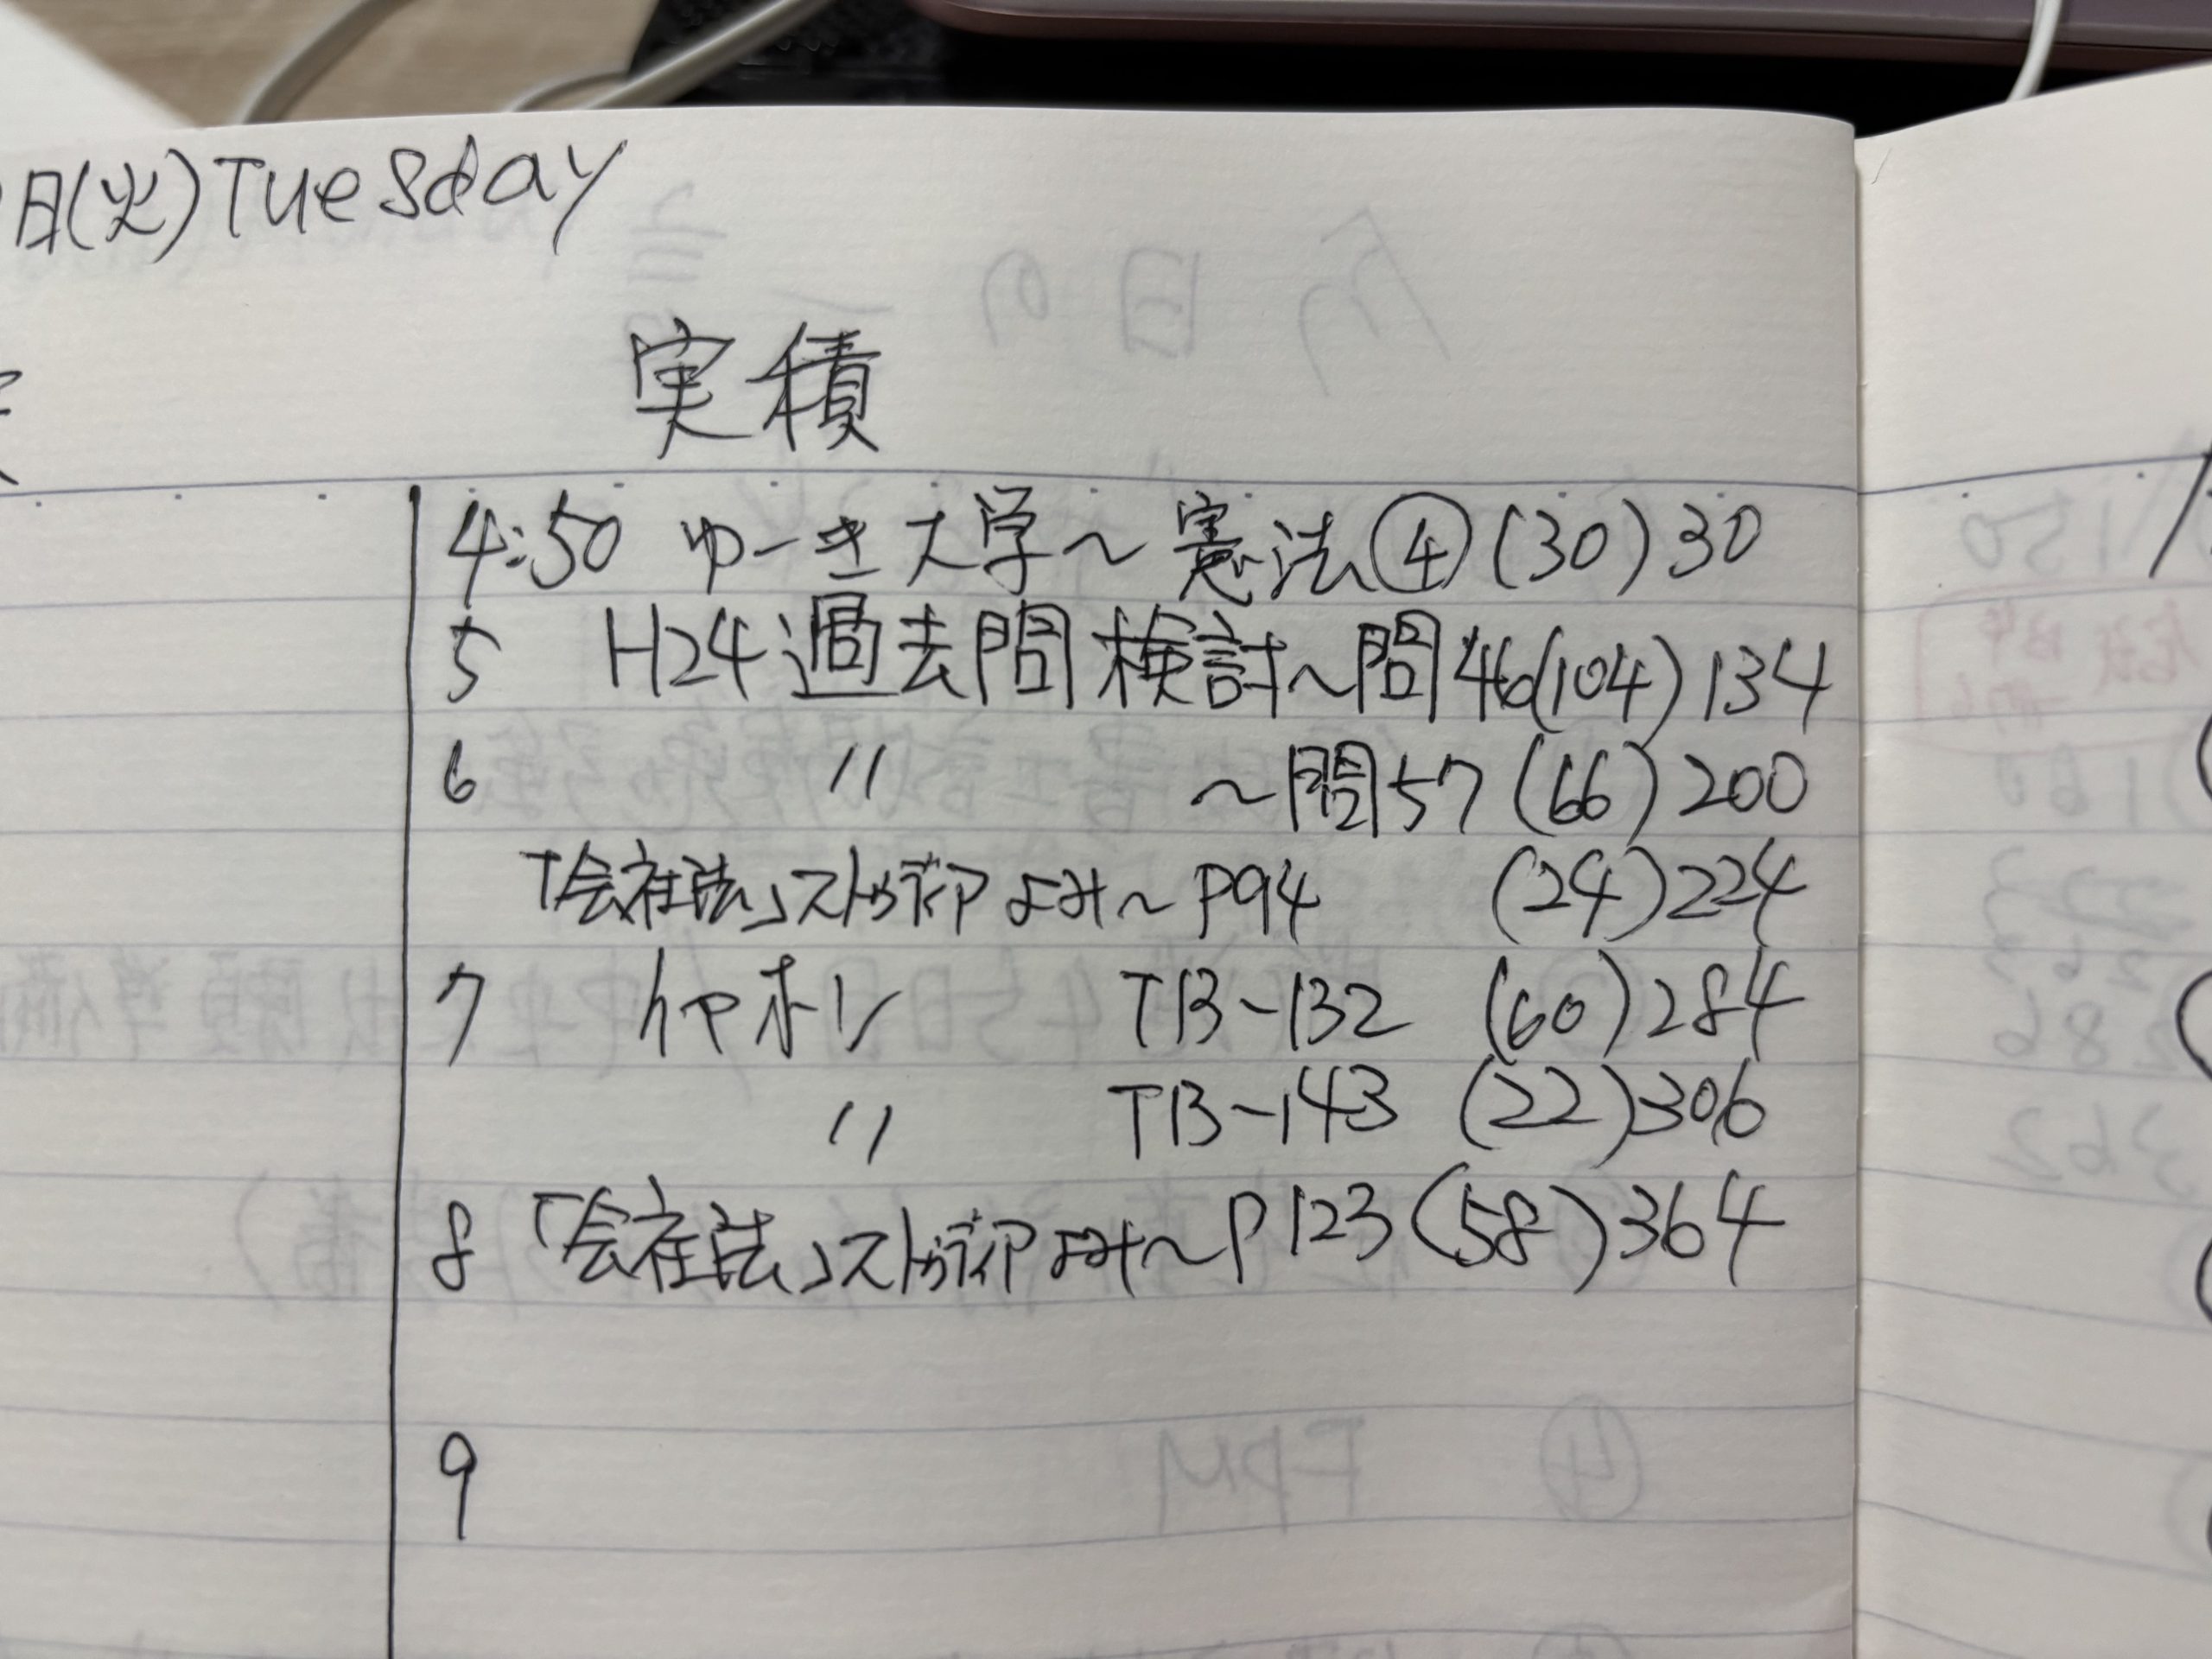 日(火)Tuesday
実積
4:50 ゆーき大学〜憲法④(30)30
5 H24過去問検討〜問46(104)134
6 〃 〜問57(66)200
「会社法」ストゥディア よみ〜P94 (24)224
7 イヤホン TB-132 (60)284
〃 TB-143 (22)306
8 「会社法」ストゥディア よみ〜P123(58)364
9